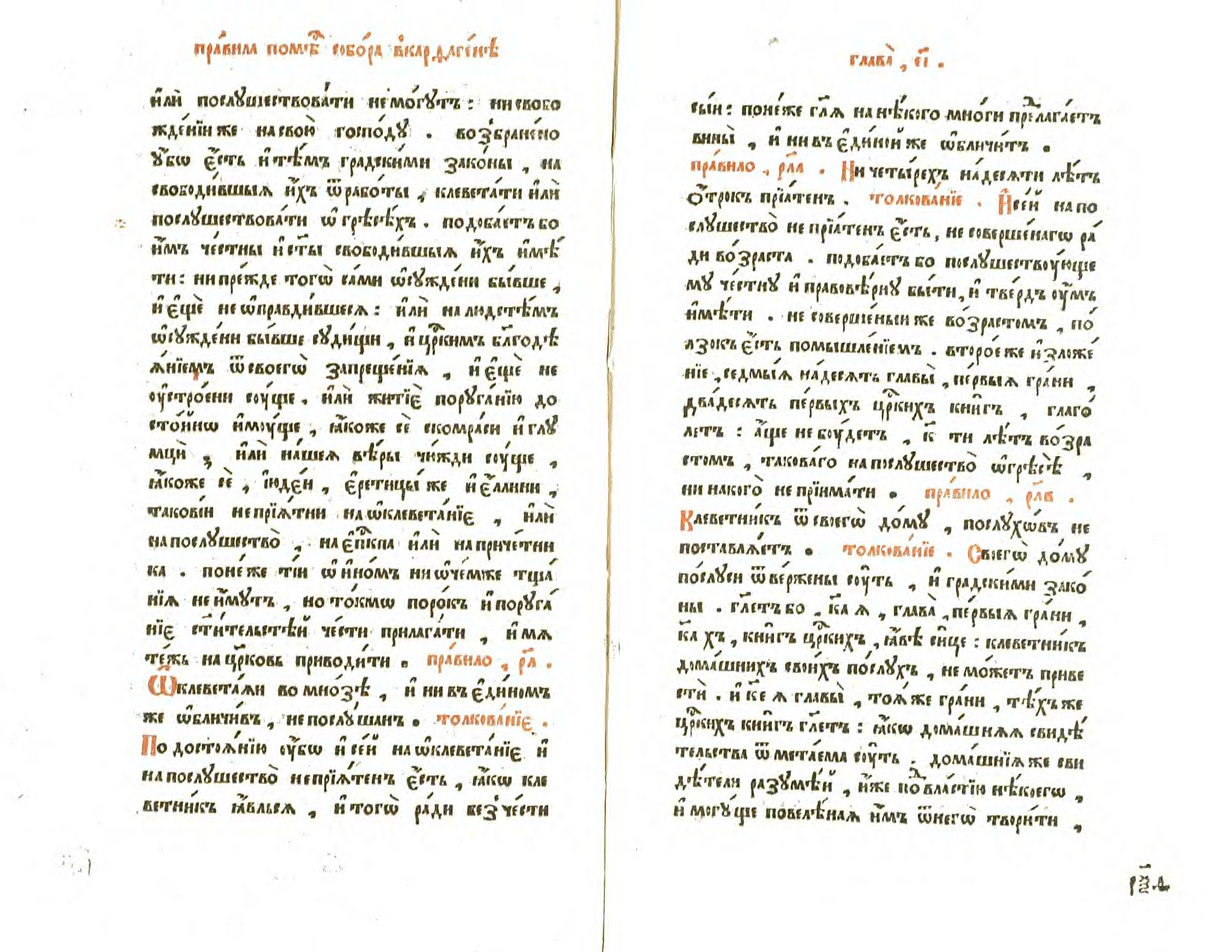 пра́вила помѣ́с собо́ра в̾карѳаге́нѣ
и҆лѝ послꙋшествова́ти немо́гꙋтъ : нисвобо
жде́нїиже насвою̀ господꙋ̀ . возбране́но
ᲂу҆́бѡ є҆́сть и҆тѣ́мъ градскими зако́ны , на
свободи́вшыѧ и҆́хъ ѿрабо́ты , клевета́ти и҆лѝ
послꙋшествова́ти ѡ҆грѣсѣ́хъ . подоба́етъбо
и҆̀мъ че́стны и҆ст҃ы свободи́вшыѧ и҆́хъ и҆мѣ́
ти : нипре́жде того̀ са́ми ѡ҆сꙋжде́ни бы́вше ,
и҆є҆щѐ неѡ҆правди́вшесѧ : и҆лѝ налюдстѣ́мъ
ѡ҆сꙋжде́ни бы́вше сꙋди́щи , и҆цр҃кимъ бл҃годѣ
ѧ́нїемъ ѿсвоегѡ̀ запреще́нїѧ , и҆є҆щѐ не
ᲂу҆стро́ени сꙋ́ще . и҆лѝ житїѐ порꙋга́нїю до
сто́йнѡ и҆мꙋ́ще , ꙗ҆́коже сѐ скомра́си и҆глꙋ
мцы̀ , и҆лѝ на́шеѧ вѣ́ры чю́жди сꙋ́ще ,
ꙗ҆́коже сѐ , і҆юде́и , є҆ретицы́же и҆є҆́ллини ,
таковїи непрїѧ́тни наѡ҆клевета́нїе , и҆лѝ
напослꙋшество̀ , нає҆пⷭ҇кпа и҆лѝ напричетни
ка . поне́же ті́и ѡ҆и҆но́мъ ниѡ҆че́мже тща́
нїѧ неи҆́мꙋтъ , но то́кмѡ поро́къ и҆порꙋга́
нїе ст҃и́тельстѣй че́сти прилага́ти , и҆мѧ
те́жь нацр҃ковь приводи́ти . пра́вило , рл҃ .
Ѡ҆клевета́ѧи во мно́зѣ , и҆ нивъ є҆ди́номъ
же ѡ҆бличи́въ , непослꙋ́шанъ . толкова́нїе .
По достоѧ́нїю ᲂу҆́бѡ и҆се́й наѡ҆клевета́нїе и҆
напослꙋшество̀ непрїѧ́тенъ є҆́сть , ꙗ҆́кѡ кле
ветни́къ ꙗ҆ви́льсѧ , и҆того̀ ра́ди без̾че́сти
глава̀ , є҃і .
сы́и : поне́же гл҃ѧ нанѣ́кого мно́ги предлага́етъ
вины̀ , и҆ нивъ є҆ди́нойже ѡ҆бличи́тъ .
пра́вило , рл҃а . Ни четы́рехъ на́десѧти лѣ́тъ
ѻ҆́трокъ прїѧ́тенъ . толкова́нїе . И҆се́й напо
слꙋшество̀ не прїѧ́тенъ є҆́сть , не соверше́нагѡ ра́
ди во́зраста . подоба́етъбо послꙋшествꙋ́юще
мꙋ че́стнꙋ и҆ правовѣ́рнꙋ бы́ти , и҆ тве́рдъ ᲂу҆́мъ
и҆мѣ́ти . не соверше́ныиже во́зрастомъ , по́
лзокъ є҆́сть помышле́нїемъ . второ́еже и҆зложе́
нїе , седмы́ѧ на́десѧть главы̀ , пе́рвыѧ гра́ни ,
два́десѧть пе́рвыхъ цр҃кихъ кни́гъ , глаго́
летъ : а҆́ще не бꙋ́детъ , к҃ ти лѣ́тъ во́зра
стомъ , такова́го напослꙋшество̀ ѡ҆грѣсѣ̀ ,
ни на кого̀ не прїима́ти . пра́вило , рл҃в .
Клеветни́къ ѿ своегѡ̀ до́мꙋ , послꙋхѡ́въ не
поставлѧ́етъ . толкова́нїе . Своегѡ̀ до́мꙋ
по́слꙋси ѿве́ржены сꙋ́ть , и҆ градскими зако́
ны . гл҃етъбо , к҃а ѧ , глава̀ , пе́рвыѧ гра́ни ,
к҃а хъ , кни́гъ цр҃кихъ , ꙗ҆́вѣ си́це : клеветни́къ
дома́шнихъ свои́хъ по́слꙋхъ , не мо́жетъ приве
стѝ . и҆ к҃е ѧ главы̀ , тоѧ́же гра́ни , тѣ́хъже
цр҃кихъ кни́гъ гл҃етъ : ꙗ҆́кѡ дома́шнѧѧ свидѣ́
тельства ѿмета́ема сꙋ́ть . дома́шнїѧже сви
дѣ́тели разꙋмѣ́й , и҆̀же под вла́стїю нѣ́коегѡ ,
и҆ могꙋ́ще повелѣ́наѧ и҆́мъ ѿнегѡ̀ твори́ти ,